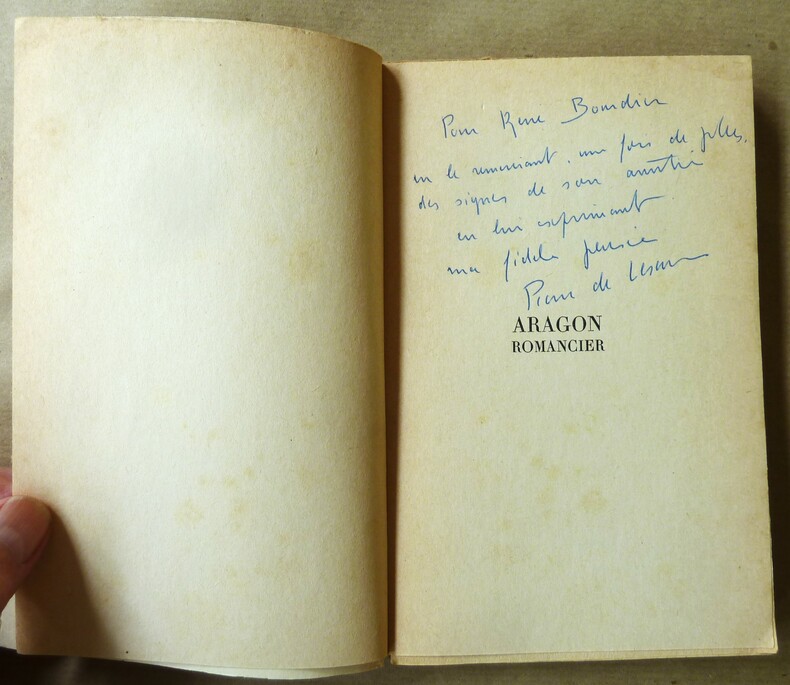 Pour René Bourdier
en le remerciant, une fois de plus,
des signes de son amitié
en lui exprimant
ma fidèle pensée
Pierre de Lescure
ARAGON
ROMANCIER